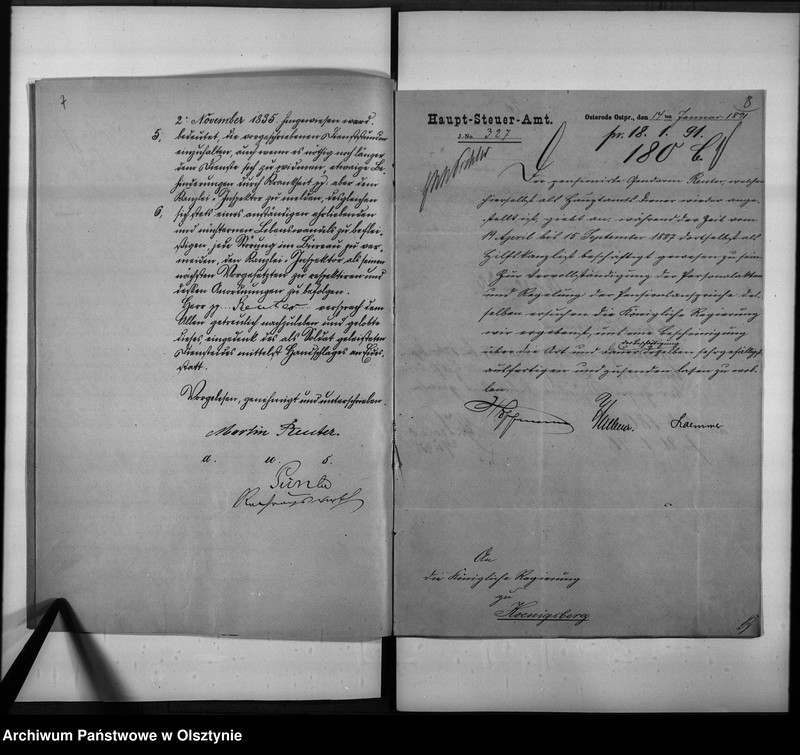 7
2. November 1835. hingewiesen ward.
5. bedeutet, die vorgeschriebenen Dienststunden
einzuhalten, auch wenn es nöthig noch länger
dem Dienste sich zu widmen, etwaige Be-
hinderungen durch Krankheit pp aber dem
Kanzlei-Inspektor zu melden, desgleichen
6. sich stets eines anständigen ehrliebenden
und nüchternen Lebenswandels zu beflei-
ßigen, jede Störung im Büreau zu ver-
meiden, den Kanzlei-Inspektor als seinen
nächsten Vorgesetzten zu respektiren und
dessen Anordnungen zu befolgen.
Herr pp. Reuter versprach dem
Allen getreulich nachzuleben und gelobte
dieses, eingedenk des als Soldat geleisteten
Diensteides mittelst Handschlages an Eides-
statt.
Vorgelesen, genehmigt und unterschrieben.
Martin Reuter.
a. u. s.
8
Haupt-Steuer-Amt.
Osterode Ostpr., den 14ten Januar 1891
J.-No. 327
pr. 18. 1. 91.
180 C
Der pensionirte Gendarm Reuter, welcher
hierselbst als Hauptamtsdiener wieder ange-
stellt ist, giebt an, während der Zeit vom
14 April bis 15 September 1887 dortselbst als
Hilfskanzlist beschäftigt gewesen zu sein.
Zur Vervollständigung der Personalakten
und Regelung der Pensionsansprüche des-
selben ersuchen die Königliche Regierung
wir ergebenst, uns eine Bescheinigung
über die Art und Dauer der Beschäftigung desselben sehr gefälligst
ausfertigen und zusenden lassen zu wol-
len.
Hoffmann Kraemer
An
die Königliche Regierung
zu
Koenigsberg
Archiwum Państwowe w Olsztynie